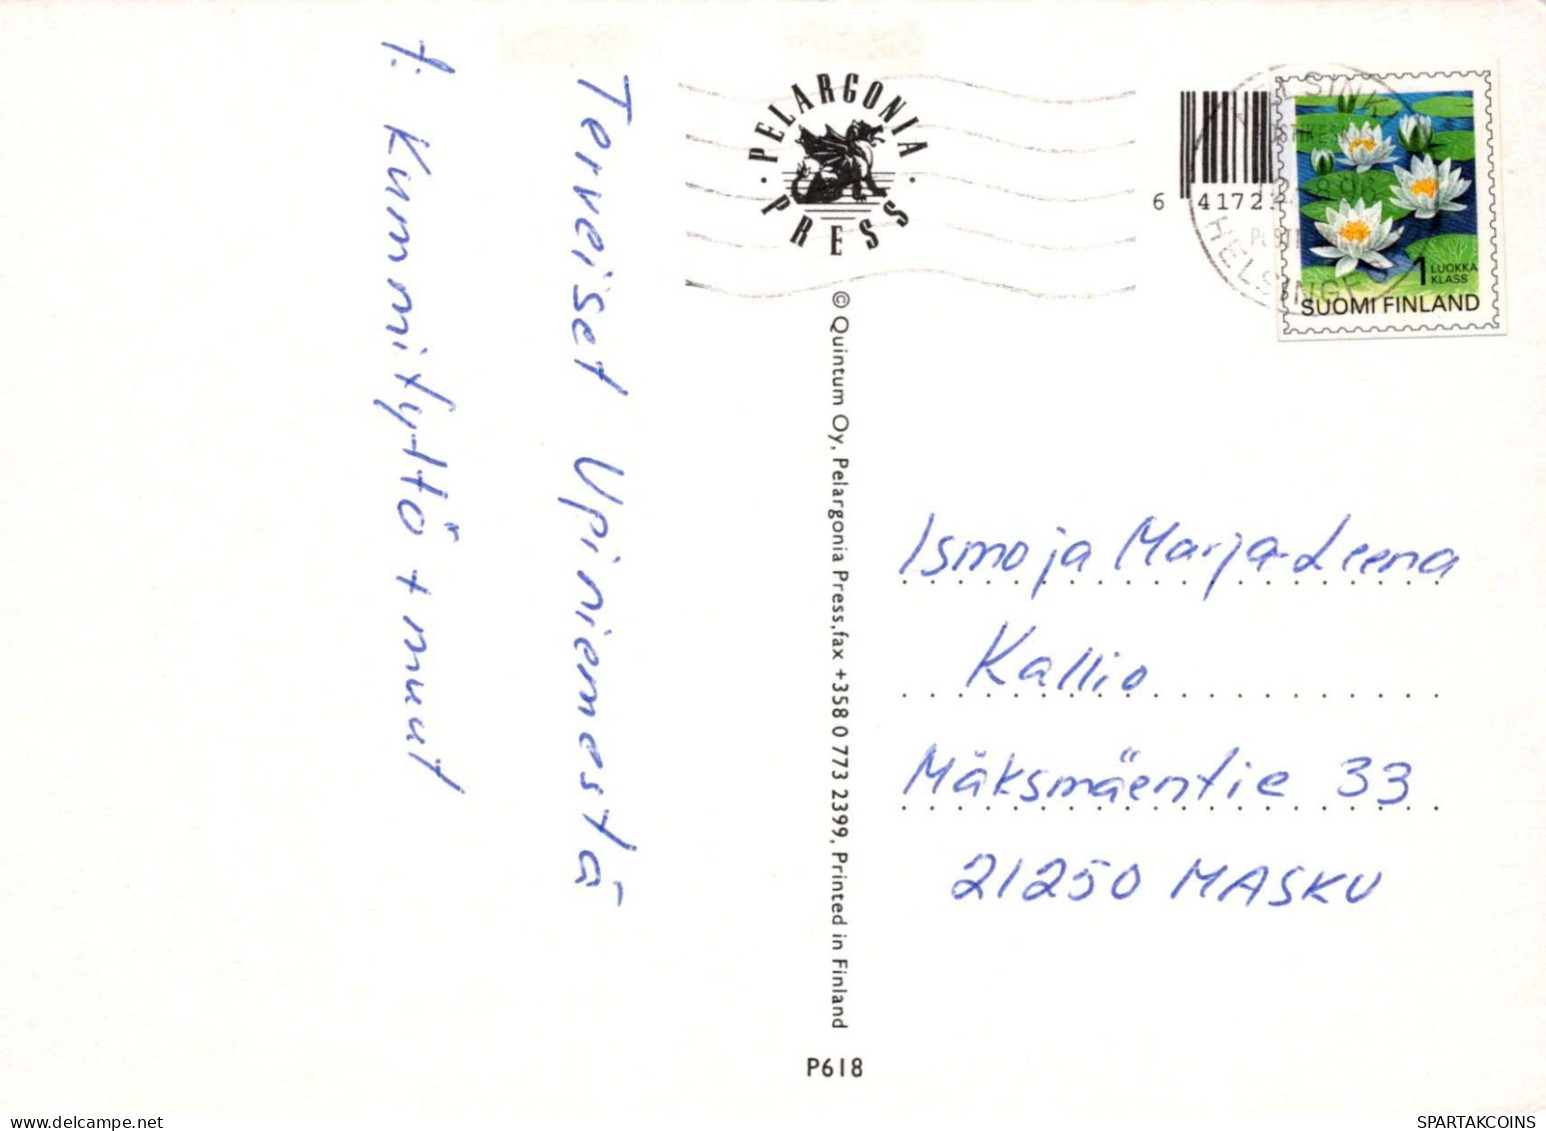 Terveiset Upiniemestä
t: Kummityttö + muut
· PELARGONIA ·
PRESS
© Quintum Oy, Pelargonia Press, fax +358 0 773 2399, Printed in Finland
P618
6
41723
HELSINKI
HELSINGFORS
1 LUOKKA
KLASS
SUOMI FINLAND
Ismo ja Marja-Leena
Kallio
Mäksmäentie 33
21250 MASKU
delcampe.net
SPARTAKCOINS